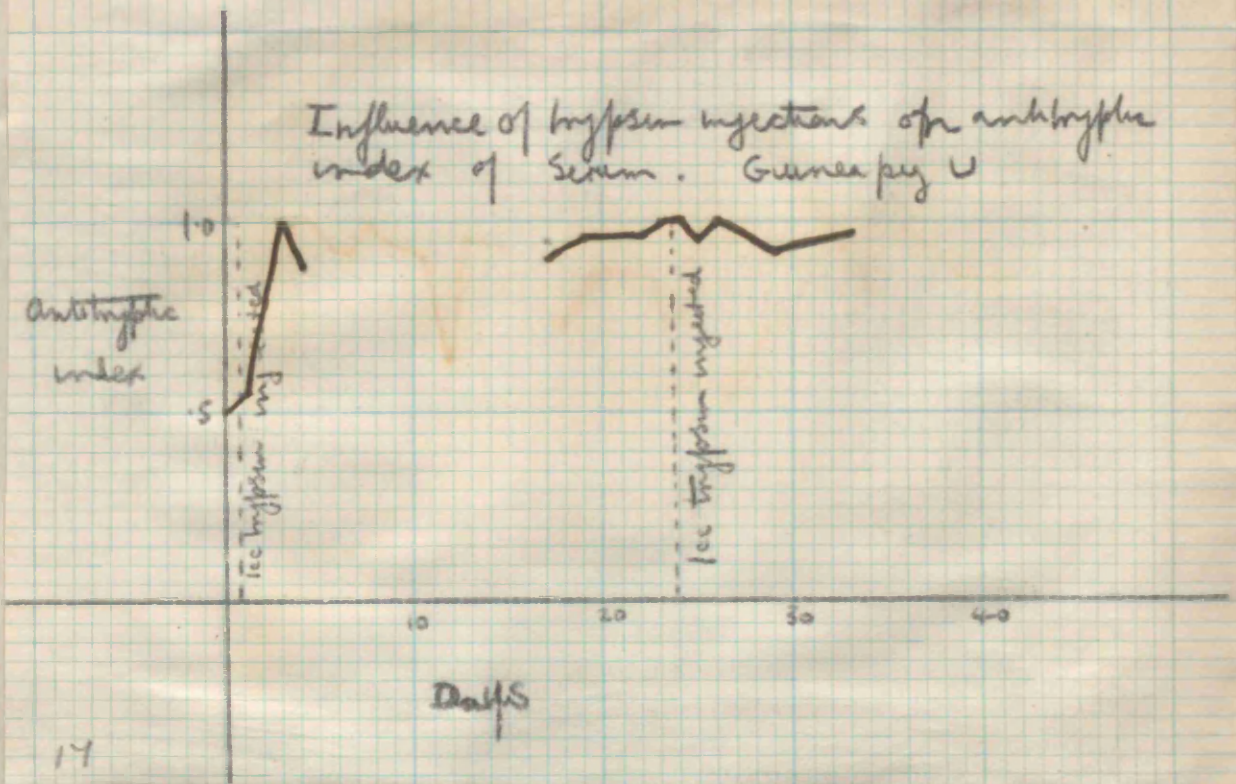 Influence of trypsin injections on antitryptic
index of Serum. Guinea pig U
1.0
Antitryptic
index
.5
1cc trypsin injected
1cc trypsin injected
10
20
30
40
Days
17